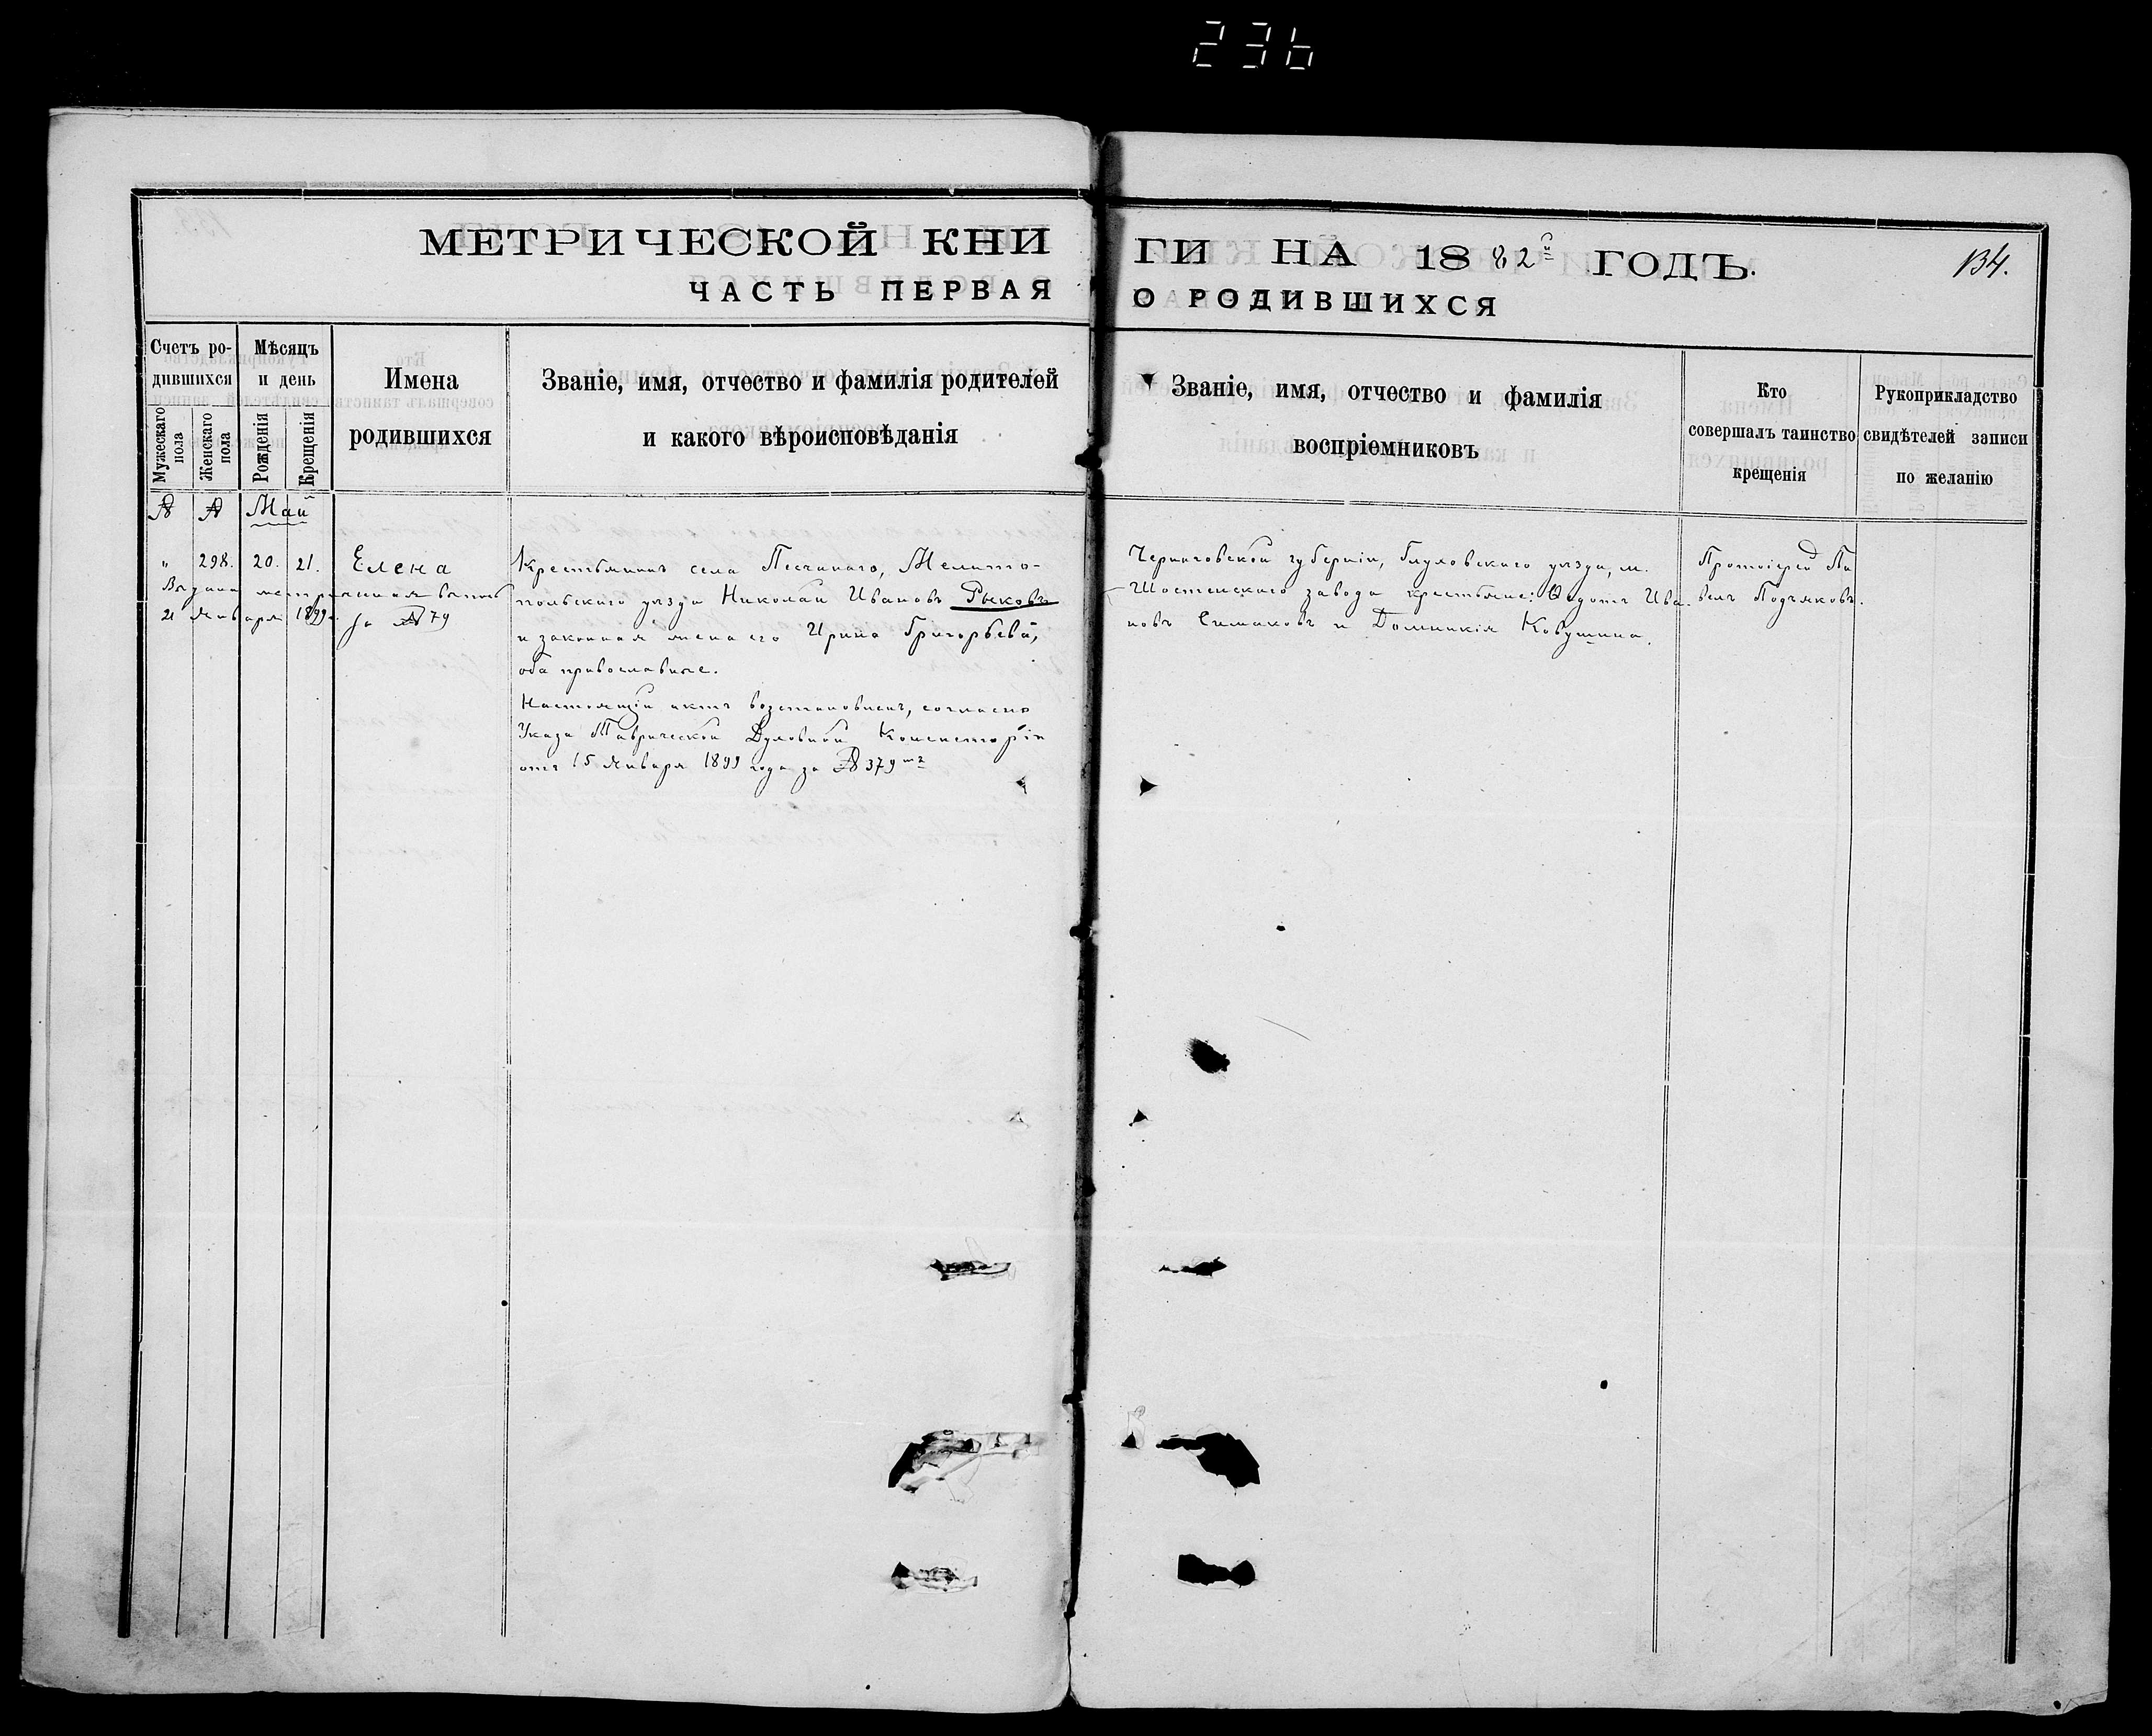 236
МЕТРИЧЕСКОЙ КНИ
ГИ НА 1882й ГОДЪ.
134.
ЧАСТЬ ПЕРВАЯ
О РОДИВШИХСЯ
Счетъ ро-
дившихся
Мужескаго
пола
Женскаго
пола
Мѣсяцъ
и день
Рожденія
Крещенія
Имена
родившихся
Званіе, имя, отчество и фамилія родителей
и какого вѣроисповѣданія
Званіе, имя, отчество и фамилія
воспріемниковъ
Кто
совершалъ таинство
крещенія
Рукоприкладство
свидѣтелей записи
по желанію
№ № Май
„ 298. 20. 21. Елена
Выдана метрическая выпись
21 Января 1899 г. за № 79
Крестьянинъ села Песчанаго, Мелито-
польскаго уѣзда Николай Ивановъ Рыковъ
и законная жена его Ирина Григорьева,
оба православные.
Настоящій актъ возстановленъ, согласно
Указа Таврической Духовной Консисторіи
отъ 15 Января 1899 года за № 379мъ
Черниговской губерніи, Глуховскаго уѣзда, м.
Шостенскаго завода крестьяне: Ѳедотъ Ива-
новъ Симаковъ и Домникія Ковушина.
Протоіерей Па
велъ Подъяковъ.